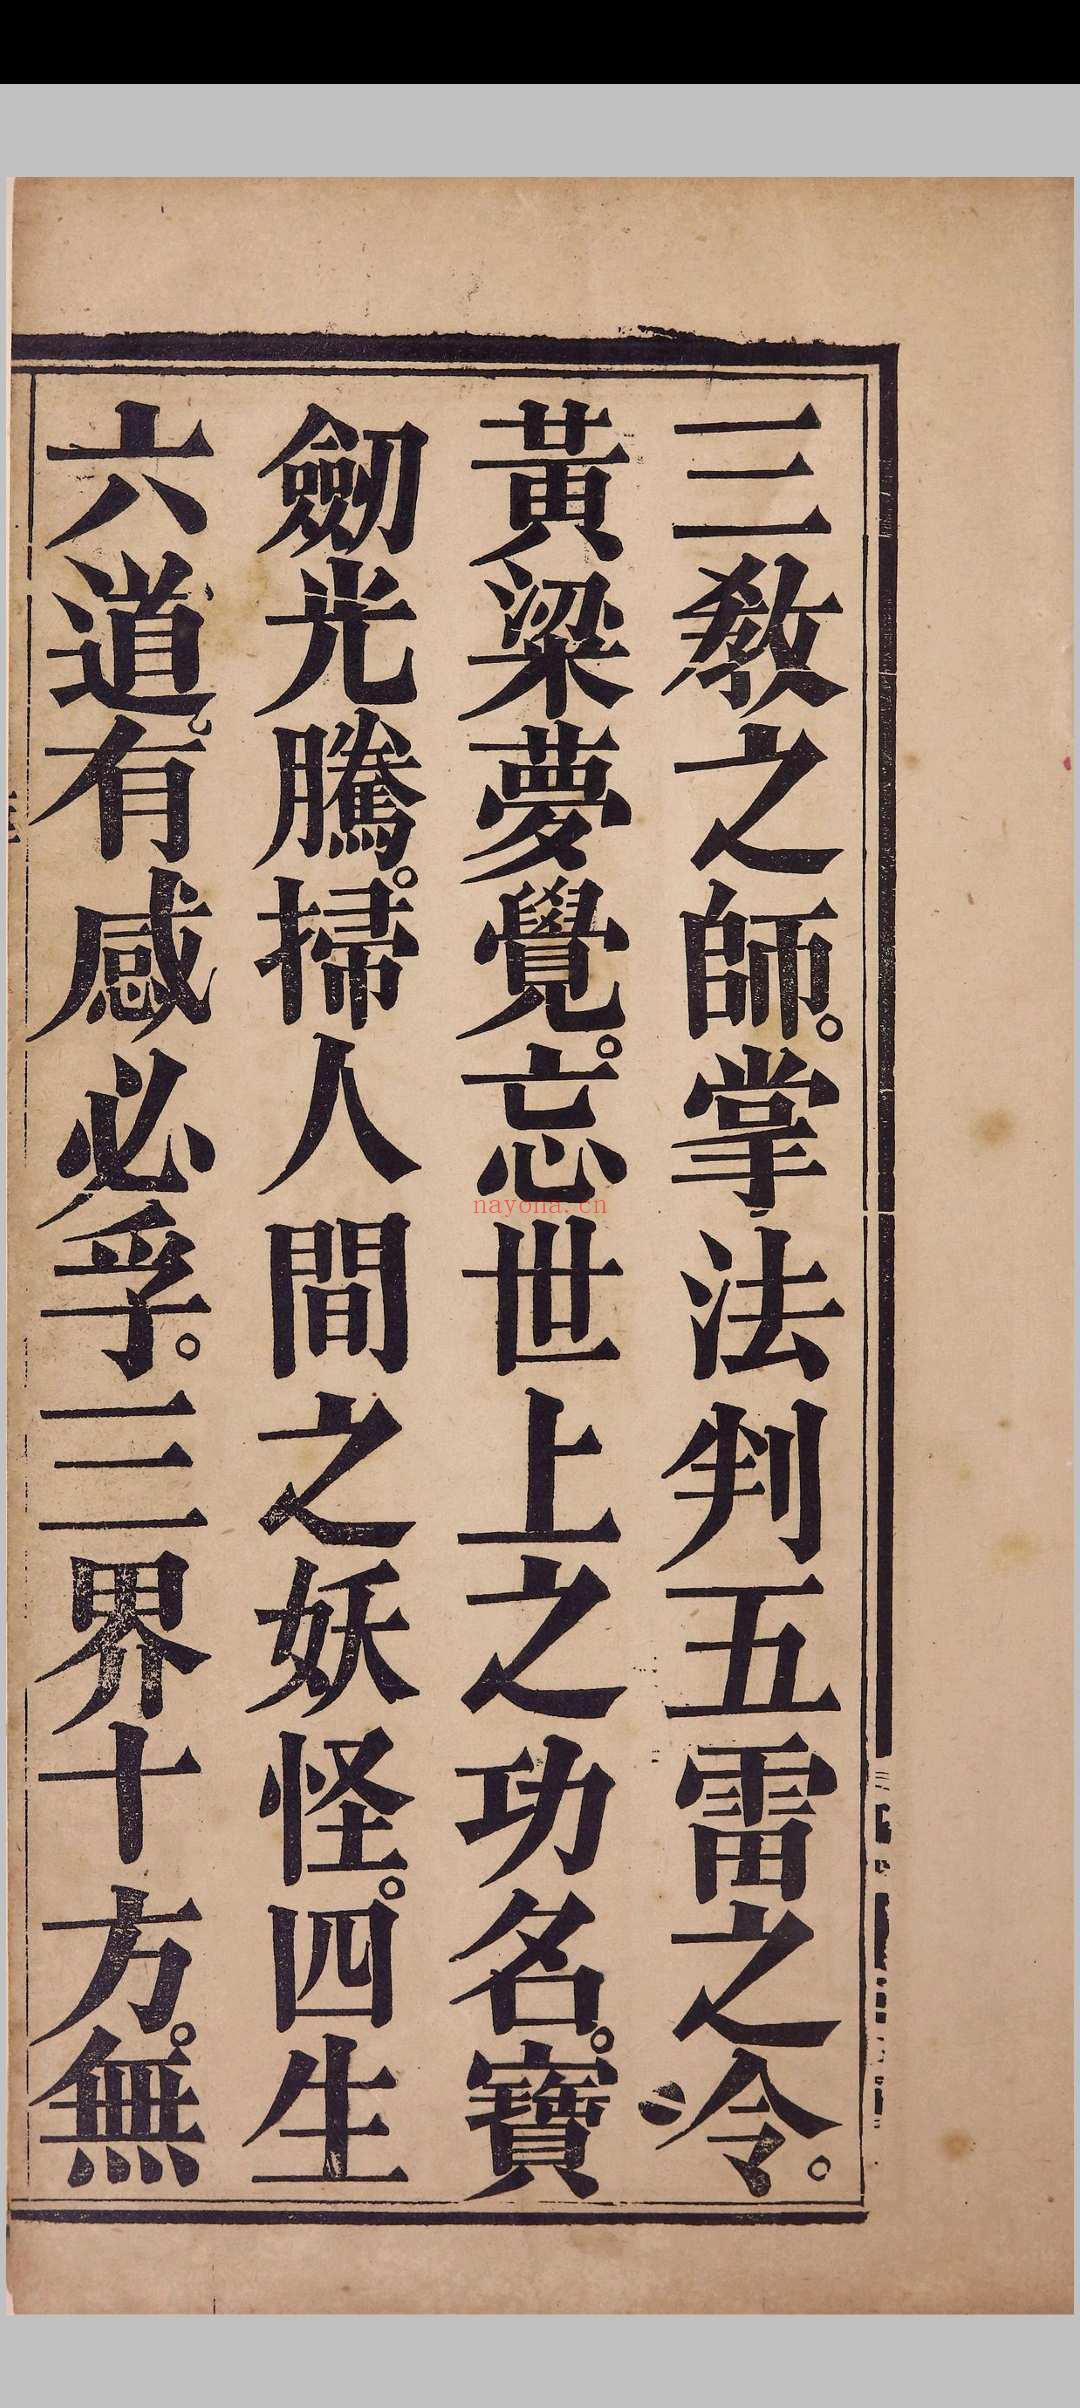 三教之師。掌法判五雷之令。
黃粱夢覺。忘世上之功名。寶
劒光騰。掃人間之妖怪。四生
六道。有感必孚。三界十方。無
nayona.cn